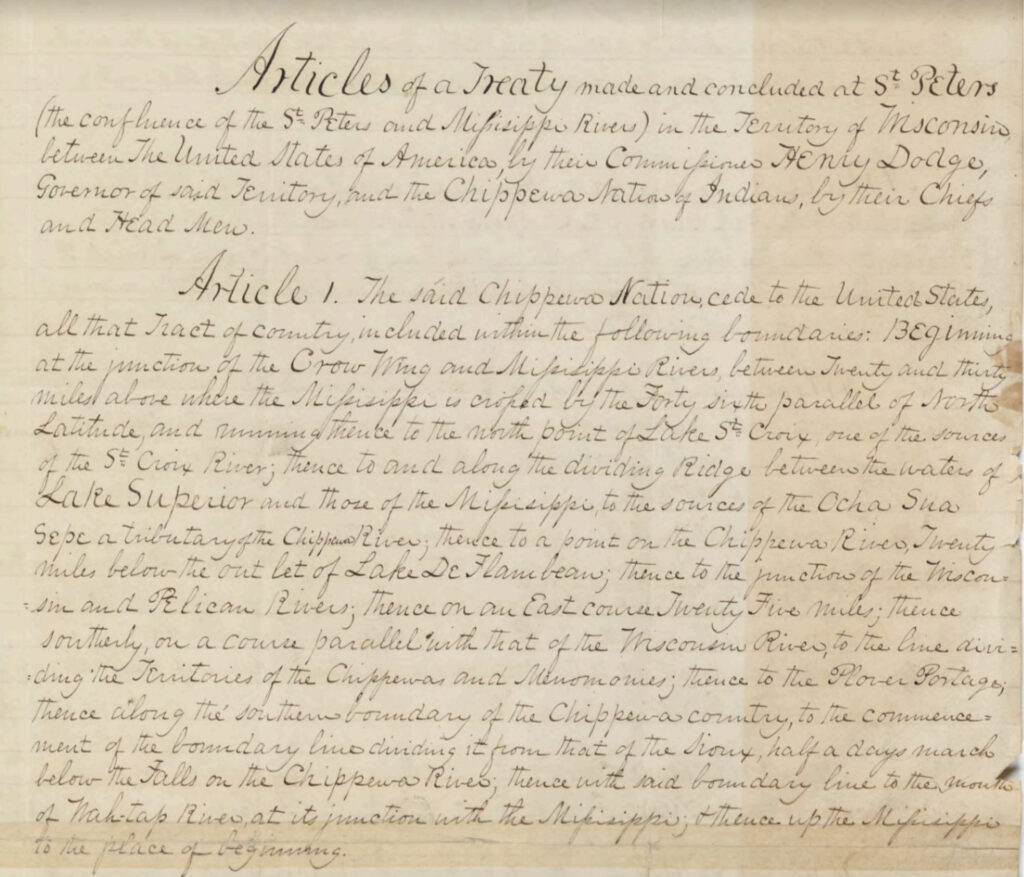 Articles of a Treaty made and concluded at St. Peters
(the confluence of the St. Peters and Missisippi Rivers) in the Territory of Wisconsin,
between The United States of America, by their Commissioner Henry Dodge,
Governor of said Territory, and the Chippewa Nation of Indians, by their Chiefs
and Head Men.
Article 1. The said Chippewa Nation, cede to the United States,
all that Tract of country, included within the following boundaries: Beginning
at the junction of the Crow Wing and Missisippi Rivers, between Twenty and thirty
miles above where the Missisippi is crossed by the Forty sixth parallel of North
Latitude, and running thence to the north point of Lake St. Croix, one of the sources
of the St. Croix River; thence to and along the dividing Ridge between the waters of
Lake Superior and those of the Missisippi, to the sources of the Ocha Sua
Sepe a tributary of the Chippewa River; thence to a point on the Chippewa River, Twenty
miles below the out let of Lake De Flambeau; thence to the junction of the Wiscon-
=sin and Pelican Rivers; thence on an East course Twenty Five miles; thence
southerly, on a course parallel with that of the Wisconsin River, to the line divi=
=ding the Territories of the Chippewas and Menomonies; thence to the Plover Portage;
thence along the southern boundary of the Chippewa country, to the commence=
ment of the boundary line dividing it from that of the Sioux, half a days march
below the Falls on the Chippewa River; thence with said boundary line to the mouth
of Wah-tap River, at its junction with the Missisippi; & thence up the Missisippi
to the place of beginning.